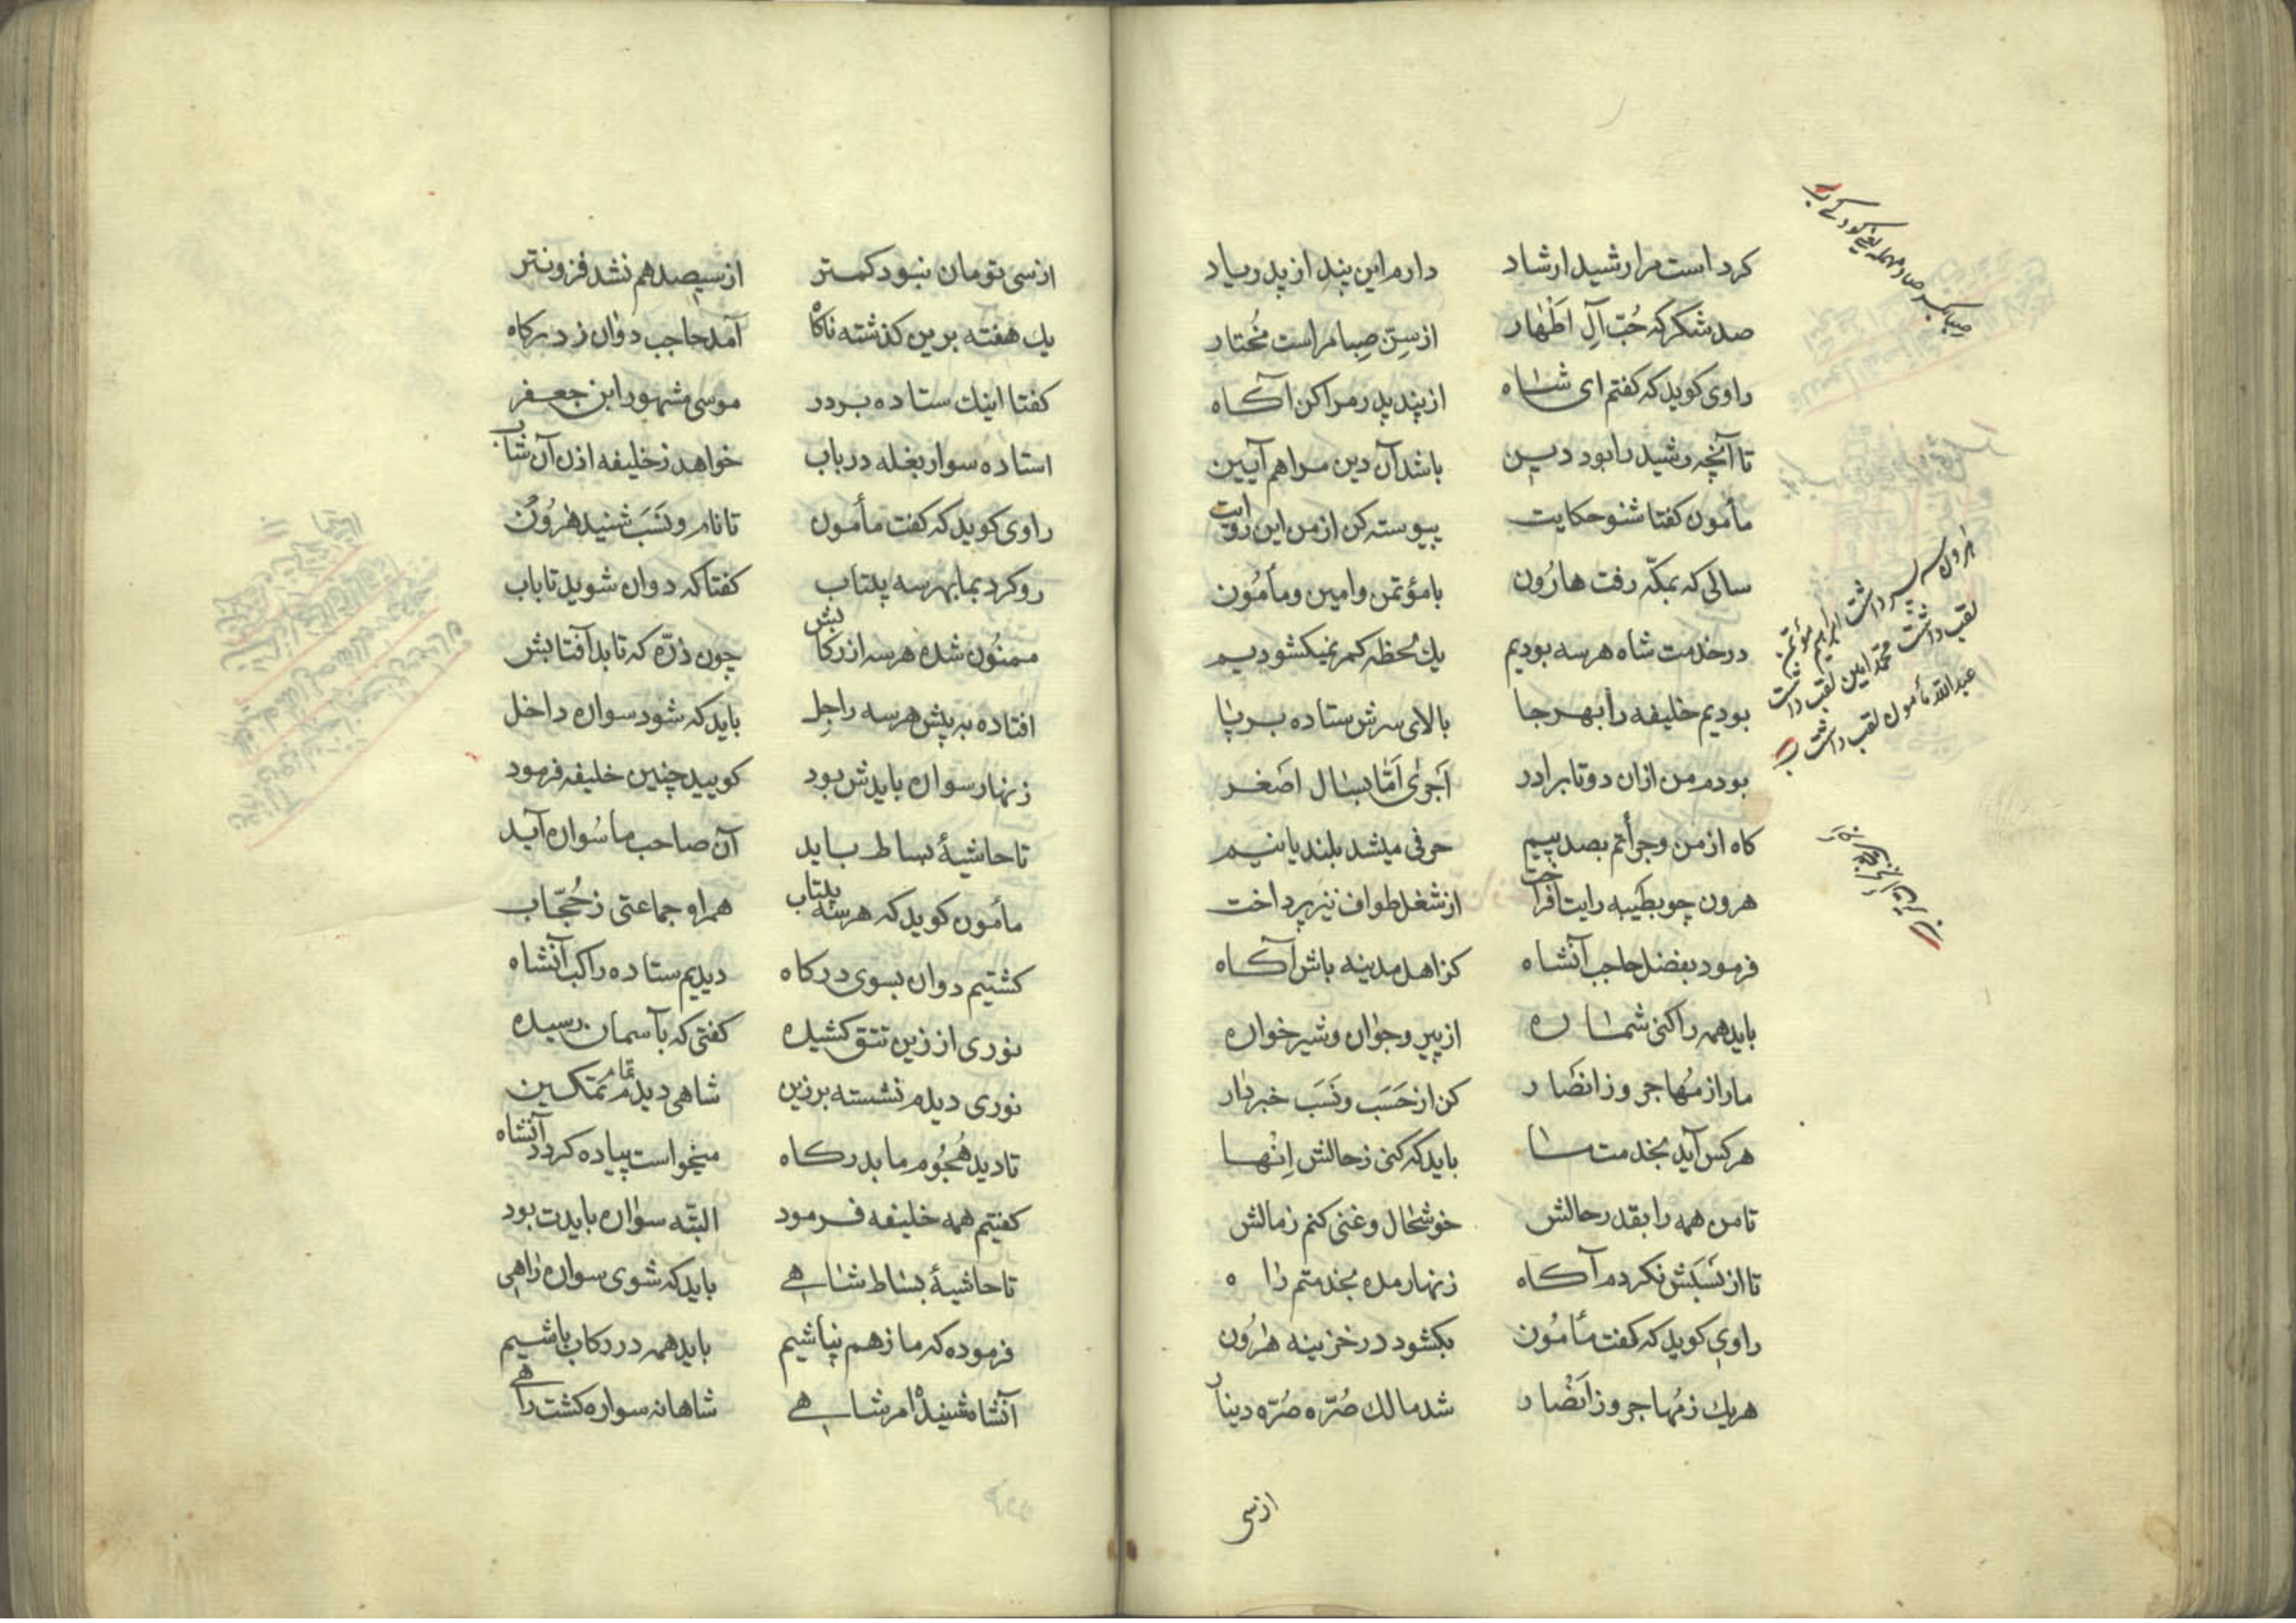 کرد است مرا رشید ارشاد دارم این پند از پدر یاد
صد شکر که حُبّ آلِ اَطْهار از سِنّ صِبا مراست مُختار
راوی کوید که کفتم ای شاه از پند پدر مرا کن آکاه
تا آنچه رشید را بود دین باشد آن دین مرا هم آیین
مأمون کفتا شنو حکایت پیوسته کن از من این روایت
سالی که بمکّه رفت هارُون با مؤتمن و امین و مأمُون
در خدمت شاه هر سه بودیم یك لحظه کمر نمیکشودیم
بودیم خلیفه را بهر جا بالای سرش ستاده بر پا
بودم من ازان دو تا برادر اَجریٰ اَمّا بسال اصغر
کاه از من و جرأتم بصد بیم حرفی میشد بلند یا نیم
هرون چو بطَیبه رایت افراخت از شغل طواف نیز پرداخت
فرمود بفضل حاجب آنشاه کز اهل مدینه باش آکاه
باید همه را کنی شماره از پیر و جوان و شیر خواره
مارا ز مُهاجر و ز انصار کن از حَسَب و نَسَب خبردار
هر کس آید بخدمت ما باید که کنی ز حالش اِنْها
تا من همه را بقدر حالش خوشحال و غنی کنم ز مالش
تا از نَسَبَش نکردم آکاه زنهار مده بخدمتم راه
راوی کوید که کفت مأمُون بکشود در خزینه هرُون
هر یك ز مُهاجر و ز اَنصار شد مالك صُرّه صُرّه دینار
صبا بکسر صاد مهمله یعنی کودکی
هرون سه پسر داشت ابراهیم مؤتمن
لقب داشت محمد امین لقب داشت
عبدالله مأمون لقب داشت
از سی
از سی تومان نبود کمتر از سیصد هم نشد فزونتر
یك هفته برین کذشته ناکاه آمد حاجب دوان ز درکاه
کفتا اینك ستاده بر در موسی مشهور ابن جعفر
استاده سوار بغله در باب خواهد ز خلیفه اذن آن شاب
راوی کوید که کفت مأمون تا نام و نَسَب شنید هرُون
رو کرد بما بهر سه بیتاب کفتا که دوان شوید تا باب
ممنُون شده هر سه از رکابش چون ذرّه که تابد آفتابش
افتاده به پیش هر سه راجِل باید که شود سواره داخل
زنهار سواره بایدش بود کویید چنین خلیفه فرمود
تا حاشیهٔ بساط باید آن صاحب ما سُواره آید
مأمون کوید که هر سه بیتاب همراه جماعتی ز حُجّاب
کشتیم دوان بسوی درکاه دیدیم ستاده راکب آنشاه
نوری از زین تتق کشیده کفتی که بآسمان رسیده
نوری دیدم نشسته بر زین شاهی دیدم تمام تمکین
تا دید هُجُوم ما بدرکاه میخواست پیاده کردد آنشاه
کفتیم همه خلیفه فرمود البتّه سواره بایدت بود
تا حاشیهٔ بساط شاهی باید که شوی سواره راهی
فرموده که ما ز هم نپاشیم باید همه در رکاب باشیم
آنشاه شنید امر شاهی شاهانه سواره کشت راهی